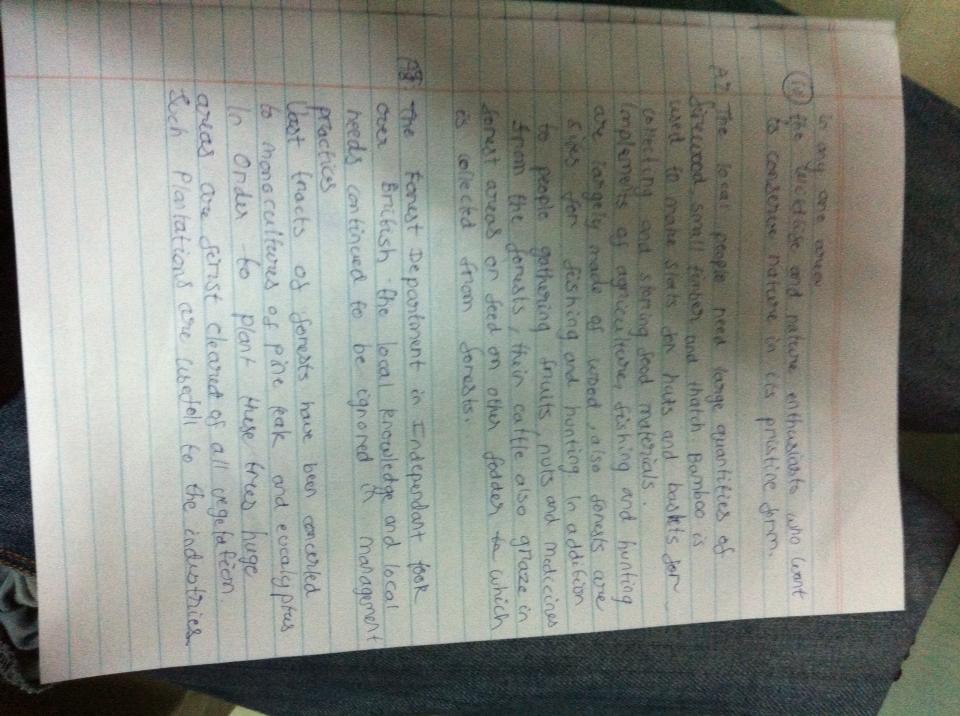 in any one area
(iv) the wildlife and nature enthusiasts who want
to conserve nature in its pristine form.
A7 The local people need large quantities of
firewood small timber and thatch. Bamboo is
used to make slats for huts and baskets for
collecting and storing food materials.
Implements of agriculture, fishing and hunting
are largely made of wood, also forests are
sites for fishing and hunting. In addition
to people gathering fruits, nuts and medicines
from the forests, their cattle also graze in
forest areas or feed on other fodder which
is collected from forests.
A8. The Forest Department in Independant took
over British the local knowledge and local
needs continued to be ignored in managment
practices
Vast tracts of forests have been
to monocultures of pine teak and eucalyptus
In order to plant these trees huge
areas are first cleared of all vegetation.
Such Plantations are usefull to the industries